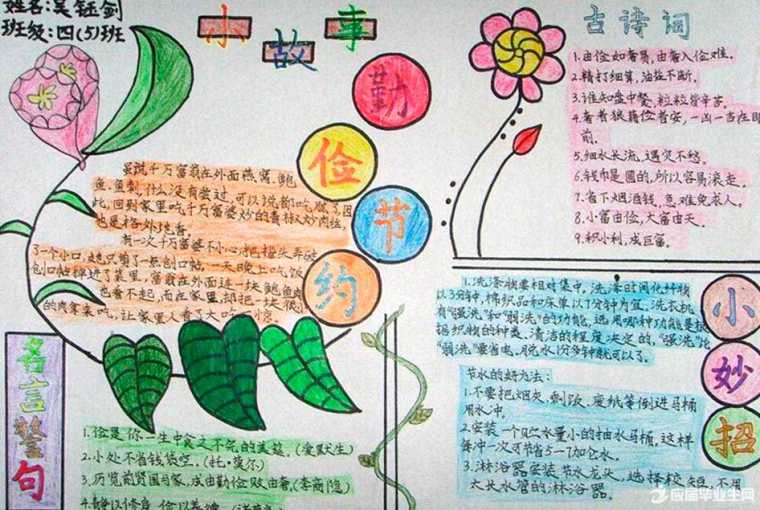 姓名:吴钰剑
班级:四(5)班
小故事
勤俭节约
虽说千万富翁在外面燕窝、鲍
鱼、鱼刺,什么没有尝过,可以说都吃腻了,因
此,回到家里吃千万富婆炒的青椒炒肉丝,
也是格外地香。
有一次千万富婆不小心把指头弄破
了一个小口,她只剪了一点创口帖,一天晚上吃饭
创口帖掉进了菜里,富翁在外面连一块鲍鱼肉
也看不起,而在家里,却把一块很小
的肉拿来吃,让家里人看了大吃一惊。
名言警句
1.俭是你一生中食之不完的美筵。(爱默生)
2.小处不省钱袋空。(托·爱尔)
3.历览前贤国与家,成由勤俭败由奢。(李商隐)
4.静以修身,俭以养德。
古诗词
1.由俭如奢易,由奢入俭难。
2.精打细算,油盐不断。
3.谁知盘中餐,粒粒皆辛苦。
4.奢者狼藉俭者安,一凶一吉在眼
前。
5.细水长流,遇灾不愁。
6.钱币是圆的,所以容易滚走。
7.省下烟酒钱,急难免求人。
8.小富由俭,大富由天。
9.积小利,成巨富。
小妙招
1.洗涤物要相对集中,洗涤时间化纤物
以3分钟,棉织品和床单以7分钟为宜,洗衣机
有"强洗"和"弱洗"的功能,选用哪种功能是根
据织物的种类、清洁的程度决定的,"强洗"比
"弱洗"要省电,脱水1分多钟就可以了。
节水的好办法:
1.不要把烟灰、剩饭、废纸等倒进马桶
用水冲。
2.安装一个贮水量小的抽水马桶,这样
每冲一次可节省5—7加仑水。
3.淋浴器安装节水龙头,选择较短、不用
太长水管的淋浴器。
应届毕业生网